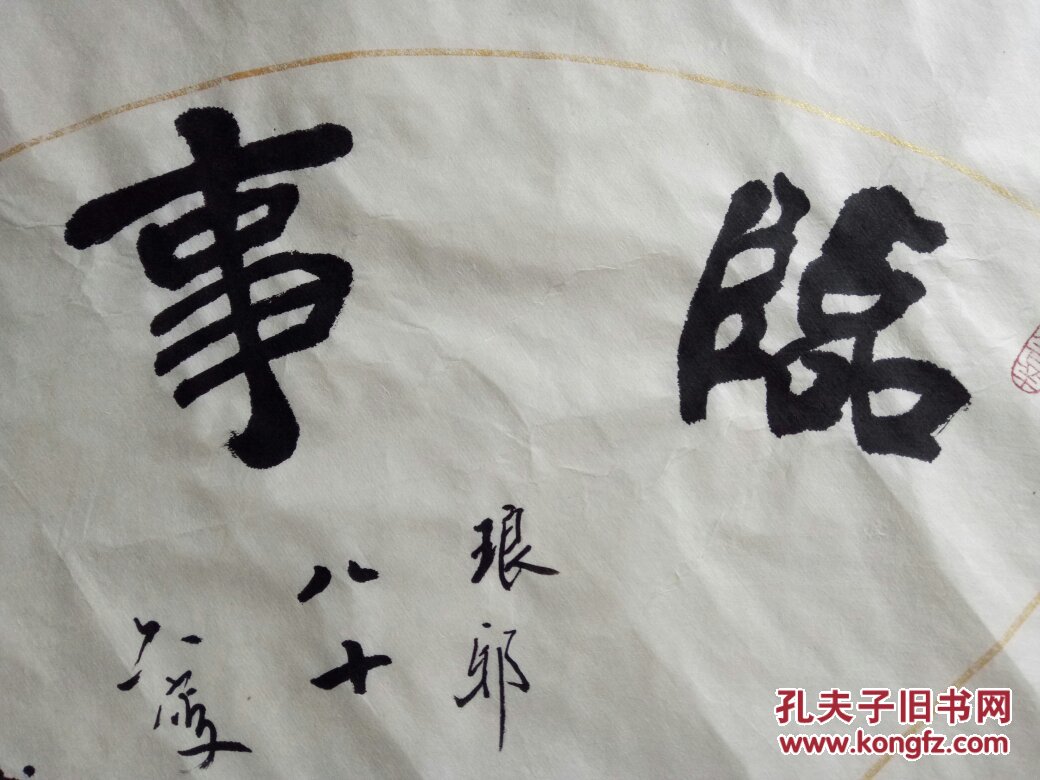 臨
事
琅邪
八十
孔夫子旧书网
www.kongfz.com